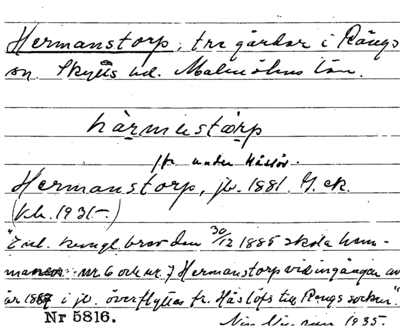 Hermanstorp, tre gårdar i Rängs
sn. Skytts hd. Malmöhus län.
härmustorp
fr. under Håslöv.
Hermanstorp, jb. 1881. G. ek.
(kb. 1931-)
"Enl. kungl. brev den 30/12 1885 skola hem-
manen nr 6 och nr 7 Hermanstorp vid ingången av
år 1887 i jb. överflyttas fr. Håslöfs till Rängs socken".
Nr 5816.
1935.